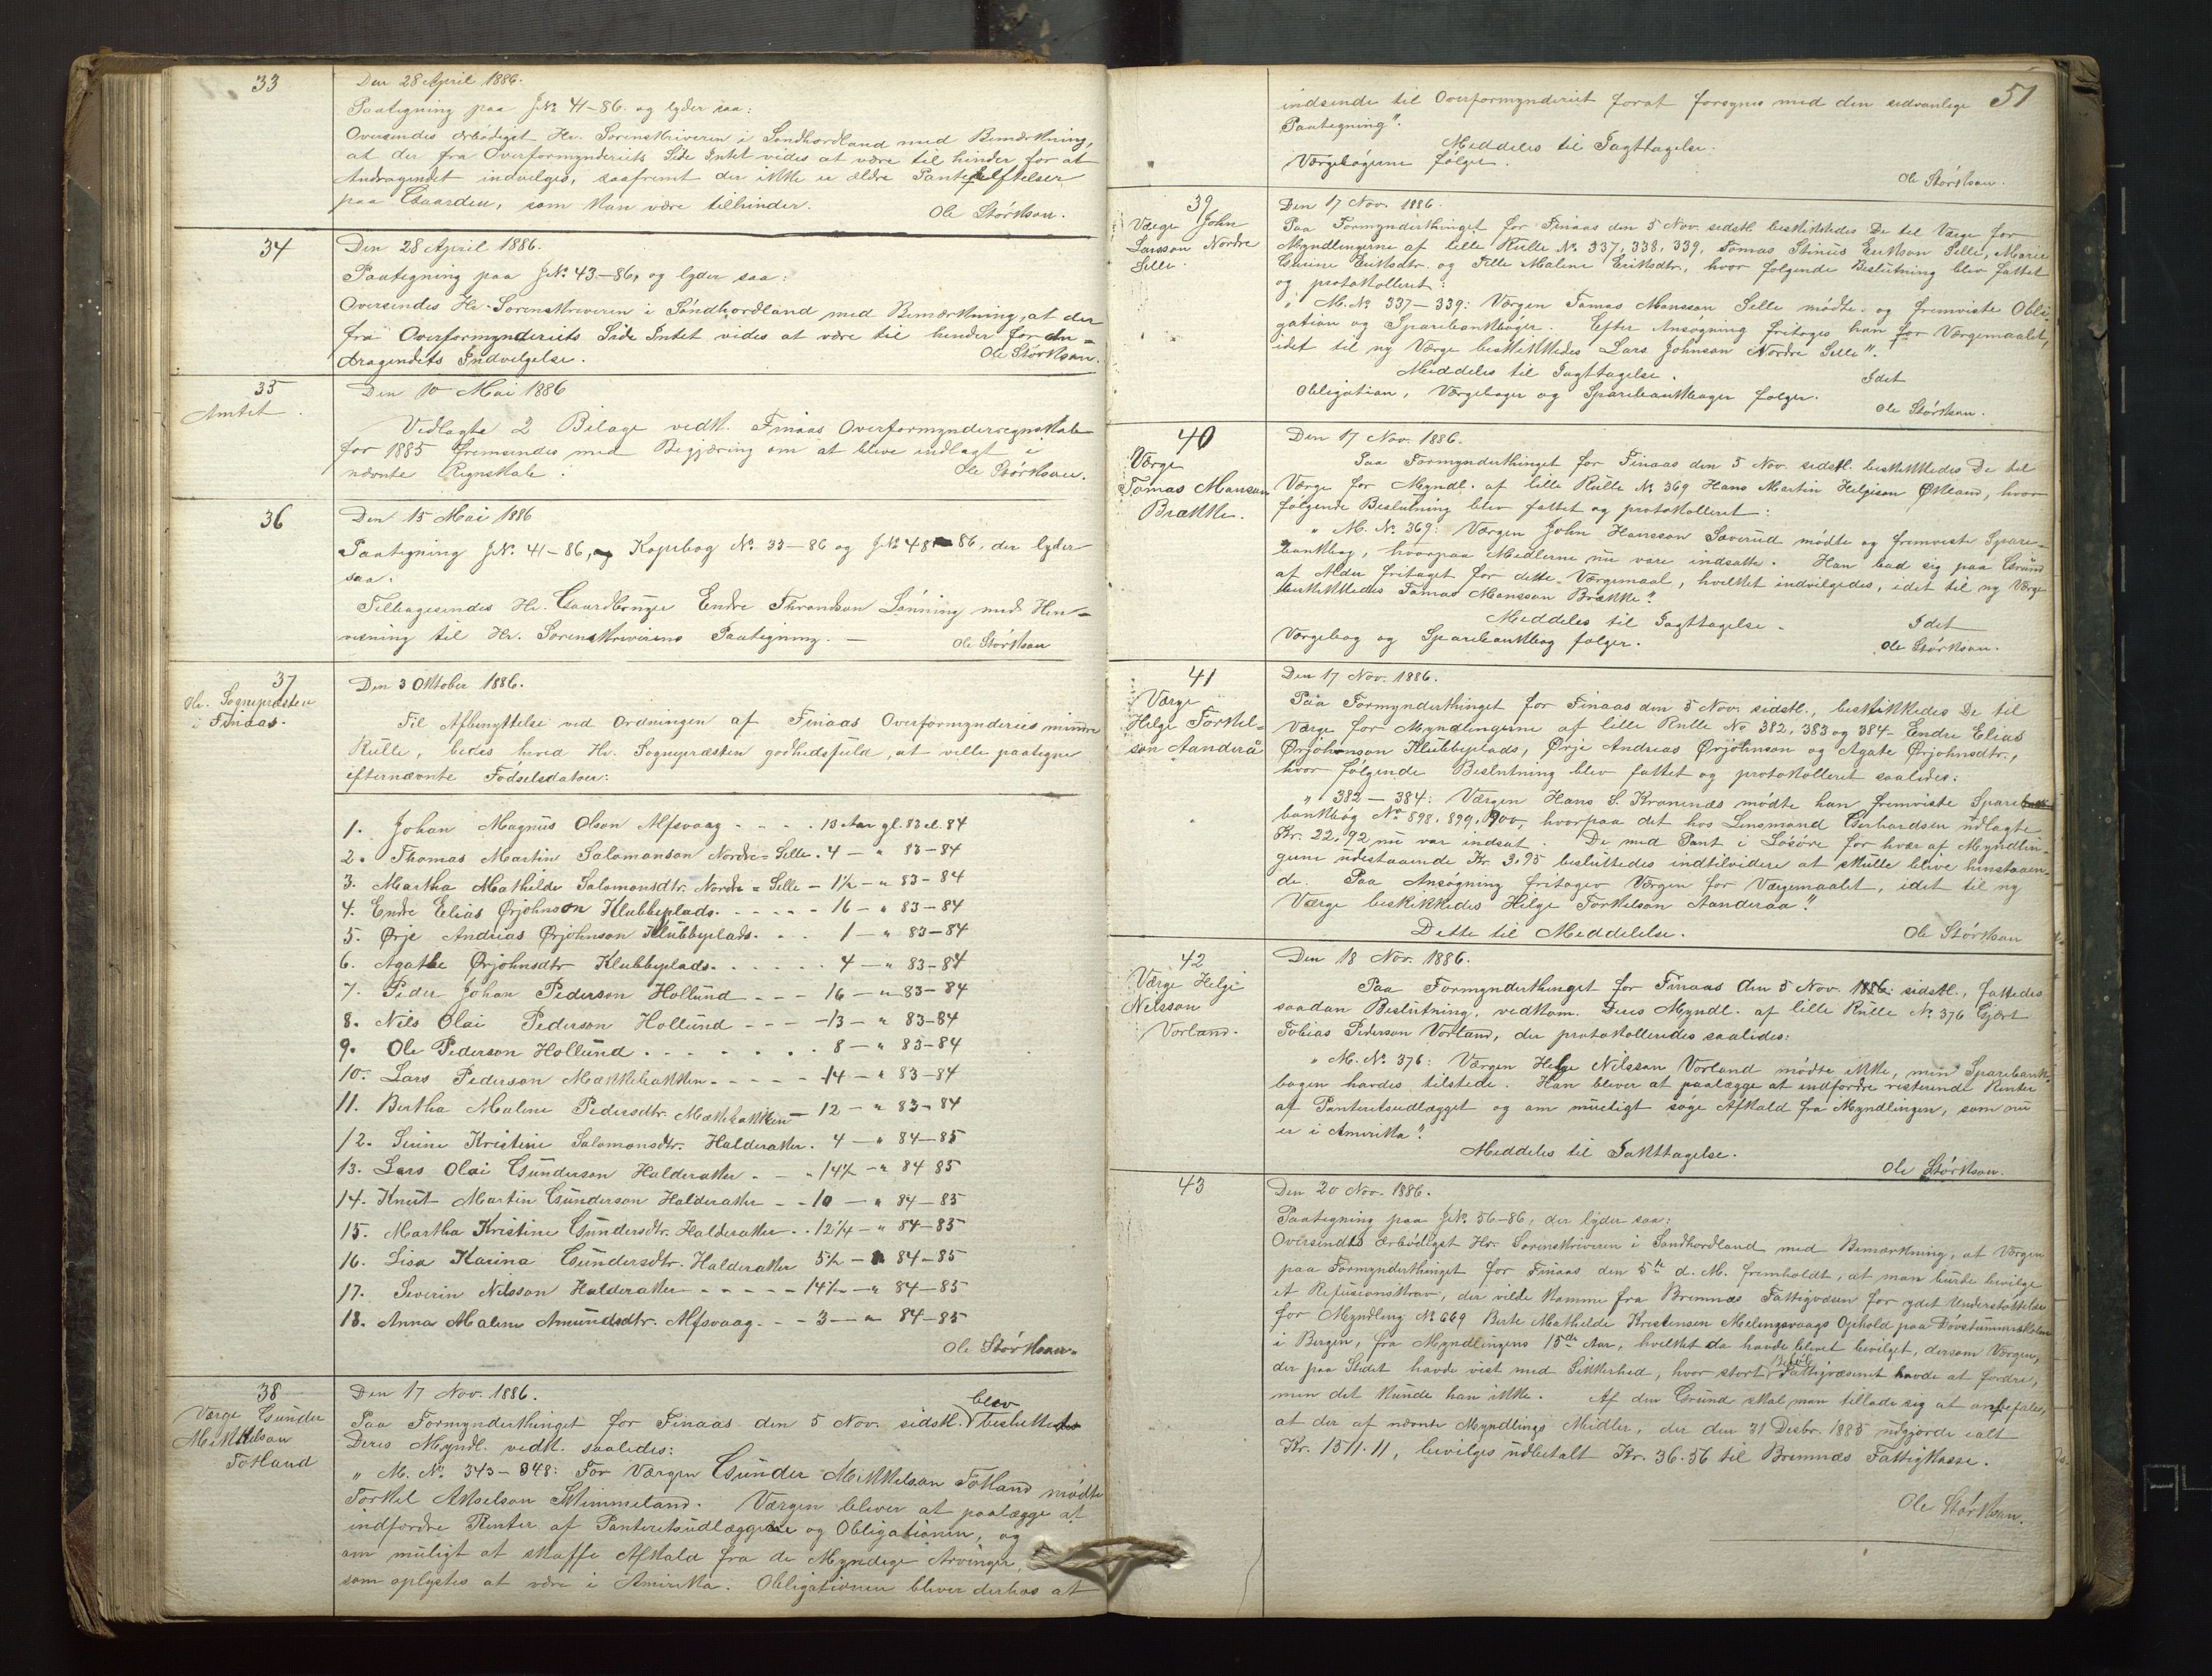 33
Den 28 April 1886.
Paategning paa JNo 41-86. og lyder saa:
Oversendes ærbødigst Hr. Sorenskriveren i Søndhordland med Bemærkning,
at der fra Overformynderiets Side Intet vides at være til hinder for at
Andragendet indvilges, saafremt der ikke er ældre Pantehæftelser
paa Gaarden, som kan være tilhinder.
Ole Størkson.
34
Den 28 April 1886.
Paategning paa JNo 43-86, og lyder saa:
Oversendes Hr. Sorenskriveren i Søndhordland med Bemærkning, at der
fra Overformynderiets Side Intet vides at være til hinder for An-
dragendets Indvilgelse.
Ole Størkson.
35
Amtet.
Den 10 Mai 1886
Vedlagte 2 Bilage vedk. Finaas Overformynderregnskab
for 1885 fremsendes med Begjæring om at blive indlagt i
nævnte Regnskab.
Ole Størkson.
36
Den 15 Mai 1886
Paategning JNo. 41-86, og Kopibog No. 33-86 og JNo 48-86, der lyder
saa:
Tilbagesendes Hr. Gaardbruger Endre Throndson Lønning med Hen-
visning til Hr. Sorenskriverens Paategning. —
Ole Størkson
37
Hr. Sognepræsten
i Finaas.
Den 3 Oktober 1886.
Til Afbenyttelse ved Ordningen af Finaas Overformynderies mindre
Rulle, bedes herved Hr. Sognepræsten godhedsfuld, at ville paategne
efternævnte Fødselsdatoer:
1. Johan Magnus Olson Alfsvaag - - - . 13 Aar gl. 83 el. 84
2. Thomas Martin Salomonson Nordre=Selle . 4 — " 83-84
3. Martha Mathilde Salomonsdtr. Nordre=Selle — 1½ — " 83-84
4. Endre Elias Ørjohnson Klubbeplads. - - - - - 16 — " 83-84
5. Ørje Andreas Ørjohnson Klubbeplads. - . . 1 — " 83-84
6. Agathe Ørjohnsdtr Klubbeplads. . . . . . 4 — " 83-84
7. Peder Johan Pederson Hollund - - - 16 — " 83-84
8. Nils Olai Pederson Hollund - - - -13 — " 83-84
9. Ole Pederson Hollund . . . . . . . 8 — " 83-84
10. Lars Pederson Mækkebakken. - - - - 14 — " 83-84
11. Bertha Maline Pedersdtr. Mækkebakken — 12 — " 83-84
12. Serine Kristine Salomonsdtr. Halderaker. 4 — " 84-85
13. Lars Olai Gunderson Halderaker - - " 14½ — " 84 85
14. Knut Martin Gunderson Halderaker - - 10 — " 84-85
15. Martha Kristine Gundersdtr. Halderaker . . 12¼ — " 84-85
16. Lisa Karina Gundersdtr. Halderaker 5½ — " 84-85
17. Severin Nelsson Halderaker - - - - - 14½ — " 84-85
18. Anna Maline Amundsdtr. Alfsvaag. - - 3 — " 84-85
Ole Størkson.
38
Værge Gunder
Mikkelson
Totland
Den 17 Nov. 1886.
Paa Formynderthinget for Finaas den 5 Nov. sidstl. blev besluttet
Deres Myndl. vedk. saaledes:
" M. No. 343-348: For Værgen Gunder Mikkelson Totland mødte
Torkel Akselson Skimmeland. Værgen bliver at paalægge at
indfordre Renter af Panteretsudlæggene og Obligationen, og
om muligt at skaffe Afkald fra de Myndige Arvinger,
som oplystes at være i Amirika. Obligationen bliver derhos at
51
indsende til Overformynderiet forat forsynes med den sedvanlige
Paategning".
Meddeles til Iagttagelse.
Værgebøgerne følger.
Ole Størkson.
39
Værge John
Larsson Nordre
Selle.
Den 17 Nov. 1886.
Paa Formynderthinget for Finaas den 5 Nov. sidstl. beskikkedes De til Værge for
Myndlingerne af lille Rulle No. 337, 338, 339, Tomas Stinius Erikson Selle, Marie
Gurine Eriksdtr. og Tille Maline Eriksdtr., hvor følgende Beslutning blev fattet
og protokolleret:
" M. No. 337-339: Værgen Tomas Monsson Selle mødte og fremviste Obli-
gation og Sparebankbøger. Efter Ansøgning fritages han for Værgemaalet,
idet til ny Værge beskikkedes Lars Johnson Nordre Selle".
Meddeles til Iagttagelse. Idet
Obligation, Værgebøger og Sparebankbøger følger.
Ole Størkson.
40
Værge
Tomas Monsson
Brække.
Den 17 Nov. 1886.
Paa Formynderthinget for Finaas den 5 Nov. sidstl. beskikkedes De til
Værge for Myndl. af lille Rulle No 369 Hans Martin Helgeson Økland, hvor
følgende Beslutning blev fattet og protokolleret:
" M. No. 369: Værgen John Hansson Sæverud mødte og fremviste Spare-
bankbog, hvorpaa Midlerne nu vare indsatte. Han bad sig paa Grund
af Alder fritaget for dette Værgemaal, hvilket indvilgedes, idet til ny Værge
beskikkedes Tomas Monsson Brække".
Meddeles til Iagttagelse. Idet
Værgebog og Sparebankbog følger.
Ole Størkson.
41
Værge
Helge Torkel-
son Aanderå
Den 17 Nov. 1886.
Paa Formynderthinget for Finaas den 5 Nov. sidstl., beskikkedes De til
Værge for Myndlingerne af lille Rulle No 382, 383 og 384 Endre Elias
Ørjohnson Klubbeplads, Ørje Andreas Ørjohnson og Agate Ørjohnsdtr.,
hvor følgende Beslutning blev fattet og protokolleret saaledes:
" 382-384: Værgen Hans S. Kranenæs mødte han fremviste Spare
bankbog No 898, 899, 900, hvorpaa det hos Lensmand Gerhardsen udlagte
Kr. 22,92 nu var indsat. De med Pant i Løsøre for hver af Myndlin-
gene udestaaende Kr. 3,95 besluttedes indtilvidere at skulle blive henstaaen-
de. Paa Ansøgning fritages Værgen for Værgemaalet, idet til ny
Værge beskikkedes Helge Torkelson Aanderaa".
Dette til Meddelelse.
Ole Størkson
42
Værge Helge
Nilsson
Vorland.
Den 18 Nov. 1886.
Paa Formynderthinget for Finaas den 5 Nov. 1886 sidstl., fattedes
saadan Beslutning, vedkom. Deres Myndl. af lille Rulle No. 376 Gjert
Tobias Pederson Vorland, der protokolleredes saaledes:
" M. No. 376: Værgen Helge Nilsson Vorland mødte ikke, men Sparebank-
bogen havdes tilstede. Han bliver at paalægge at indfordre resterende Renter
af Panteretsudlægget og om muligt søge Afkald fra Myndlingen, som nu
er i Amirika".
Meddeles til Iakttagelse.
Ole Størkson.
43
Den 20 Nov. 1886.
Paategning paa JNo. 56-86, der lyder saa:
Oversendes ærbødigst Hr. Sorenskriveren i Søndhordland med Bemærkning, at Værgen
paa Formynderthinget for Finaas den 5te d. M. fremholdt, at man burde bevilge
et Refusionskrav, der vilde komme fra Bremnæs Fattigvæsen for ydet Understøttelse
for Myndling No 669 Berte Mathilde Kristensen Melingsvaags Ophold paa Døvstummeskolen
i Bergen, fra Myndlingens 15de Aar, hvilket da havde blevet bevilget, dersom Værgen,
der paa Stedet havde vist med Sikkerhed, hvor stort Beløb Fattigvæsenet havde at fordre,
men det kunde han ikke. Af den Grund skal man tillade sig at anbefale,
at der af nævnte Myndlings Midler, der den 31 Desbr. 1885 udgjorde ialt
Kr. 1511.11, bevilges udbetalt Kr. 36.56 til Bremnæs Fattigkasse.
Ole Størkson.